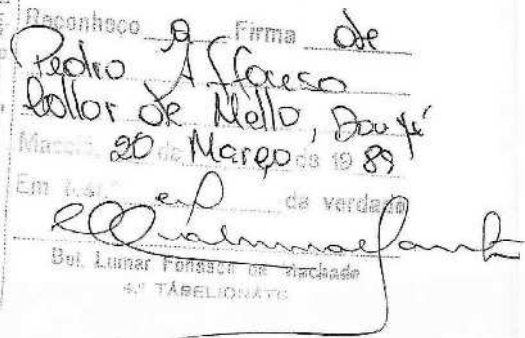 Reconheço a Firma de
Pedro Affonso
Collor de Mello, Dou fé
Maceió, 20 de Março de 19 89
Em da verdade
Bel. Lumar Fonseca de Machado
4.º TABELIONATO